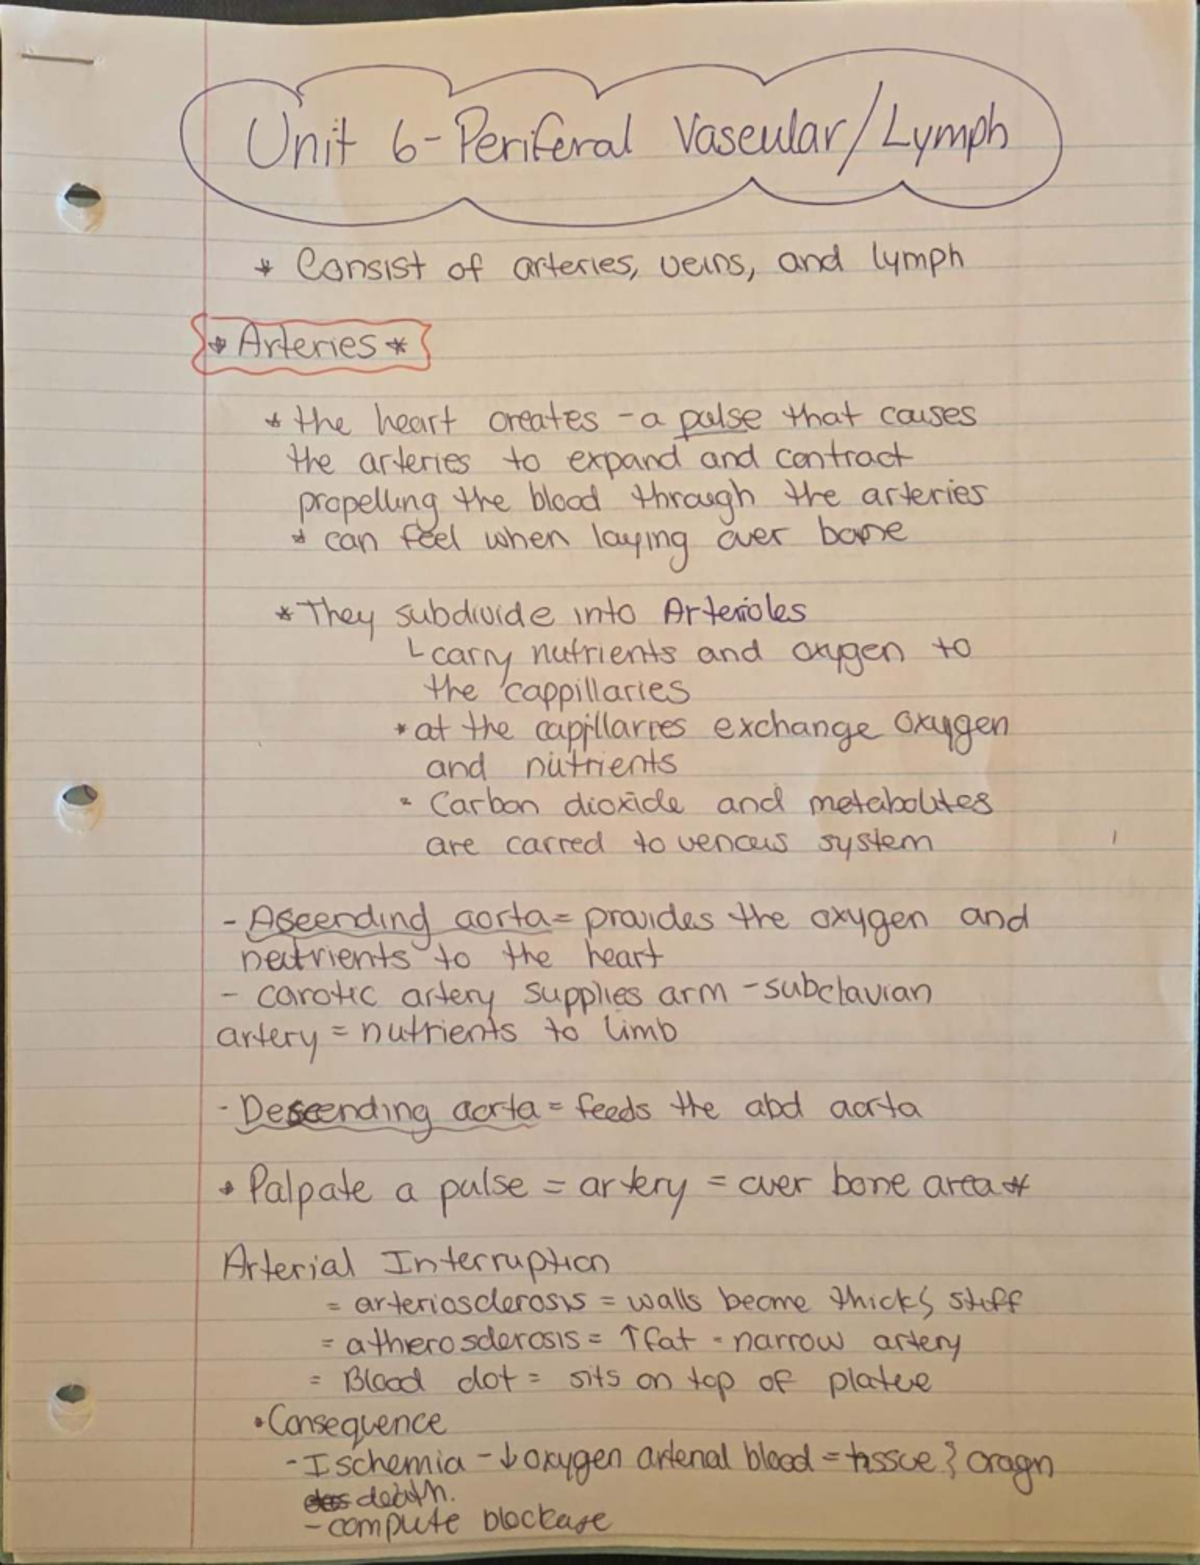 Unit 6-Periferal Vascular/Lymph
* Consist of arteries, veins, and lymph
* Arteries *
* the heart creates - a pulse that causes
the arteries to expand and contract
propelling the blood through the arteries
* can feel when laying over bone
* They subdivide into Arterioles
└ carry nutrients and oxygen to
the cappillaries
* at the capillarres exchange oxygen
and nutrients
- Carbon dioxide and metabolites
are carred to venous system
- Ascending aorta = provides the oxygen and
neutrients to the heart
- carotic artery supplies arm - subclavian
artery = nutrients to limb
- Descending aorta = feeds the abd aorta
* Palpate a pulse = artery = over bone area *
Arterial Interruption
= arteriosclerosis = walls become thick & stiff
= athierosclerosis = ↑ fat - narrow artery
= Blood clot = sits on top of platue
• Consequence
- Ischemia - ↓ oxygen arterial blood = tissue & oragn
death.
- compute blockage